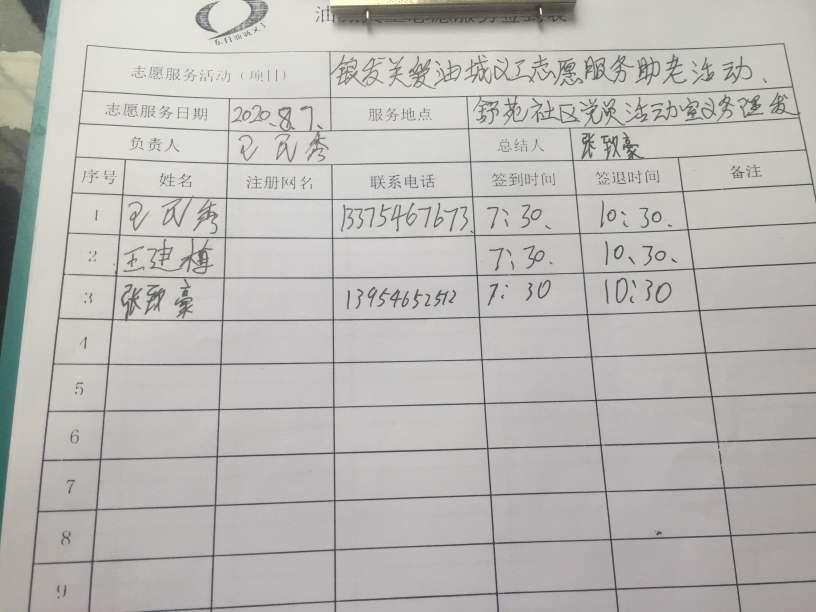 志愿服务活动（项目） 银发关爱油城义工志愿服务助老活动、
志愿服务日期 2020.8.7、 服务地点 舒苑社区党员活动室义务理发
负责人 王民秀 总结人 张致豪
序号 姓名 注册网名 联系电话 签到时间 签退时间 备注
1 王民秀 13375467673、 7:30、 10:30、
2 王建梅 7、30、 10、30、
3 张致豪 13954652512 7:30 10:30
4
5
6
7
8
9